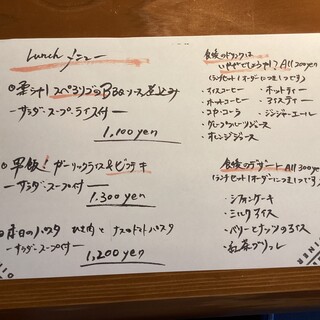 Lunch メニュー
柔らか! スペアリブのBBQソース煮込み
ーサラダ・スープ・ライス付ー
1,100yen
男飯! ガーリックライス&ビフテキ
ーサラダ・スープ付ー
1,300yen
本日のパスタ ひき肉とナスのトマトパスタ
ーサラダ・スープ付ー
1,200yen
食後のドリンクは
いかがでしょうか? All 200yen
(ランチセット1オーダーにつき1つです)
・アイスコーヒー ・ホットティー
・ホットコーヒー ・アイスティー
・コカ・コーラ ・ジンジャーエール
・グレープフルーツジュース
・オレンジジュース
食後のデザート All 300yen
(ランチセット1オーダーにつき1つです)
・シフォンケーキ
・ミルクアイス
・ベリーとナッツのアイス
・紅茶ブリュレ